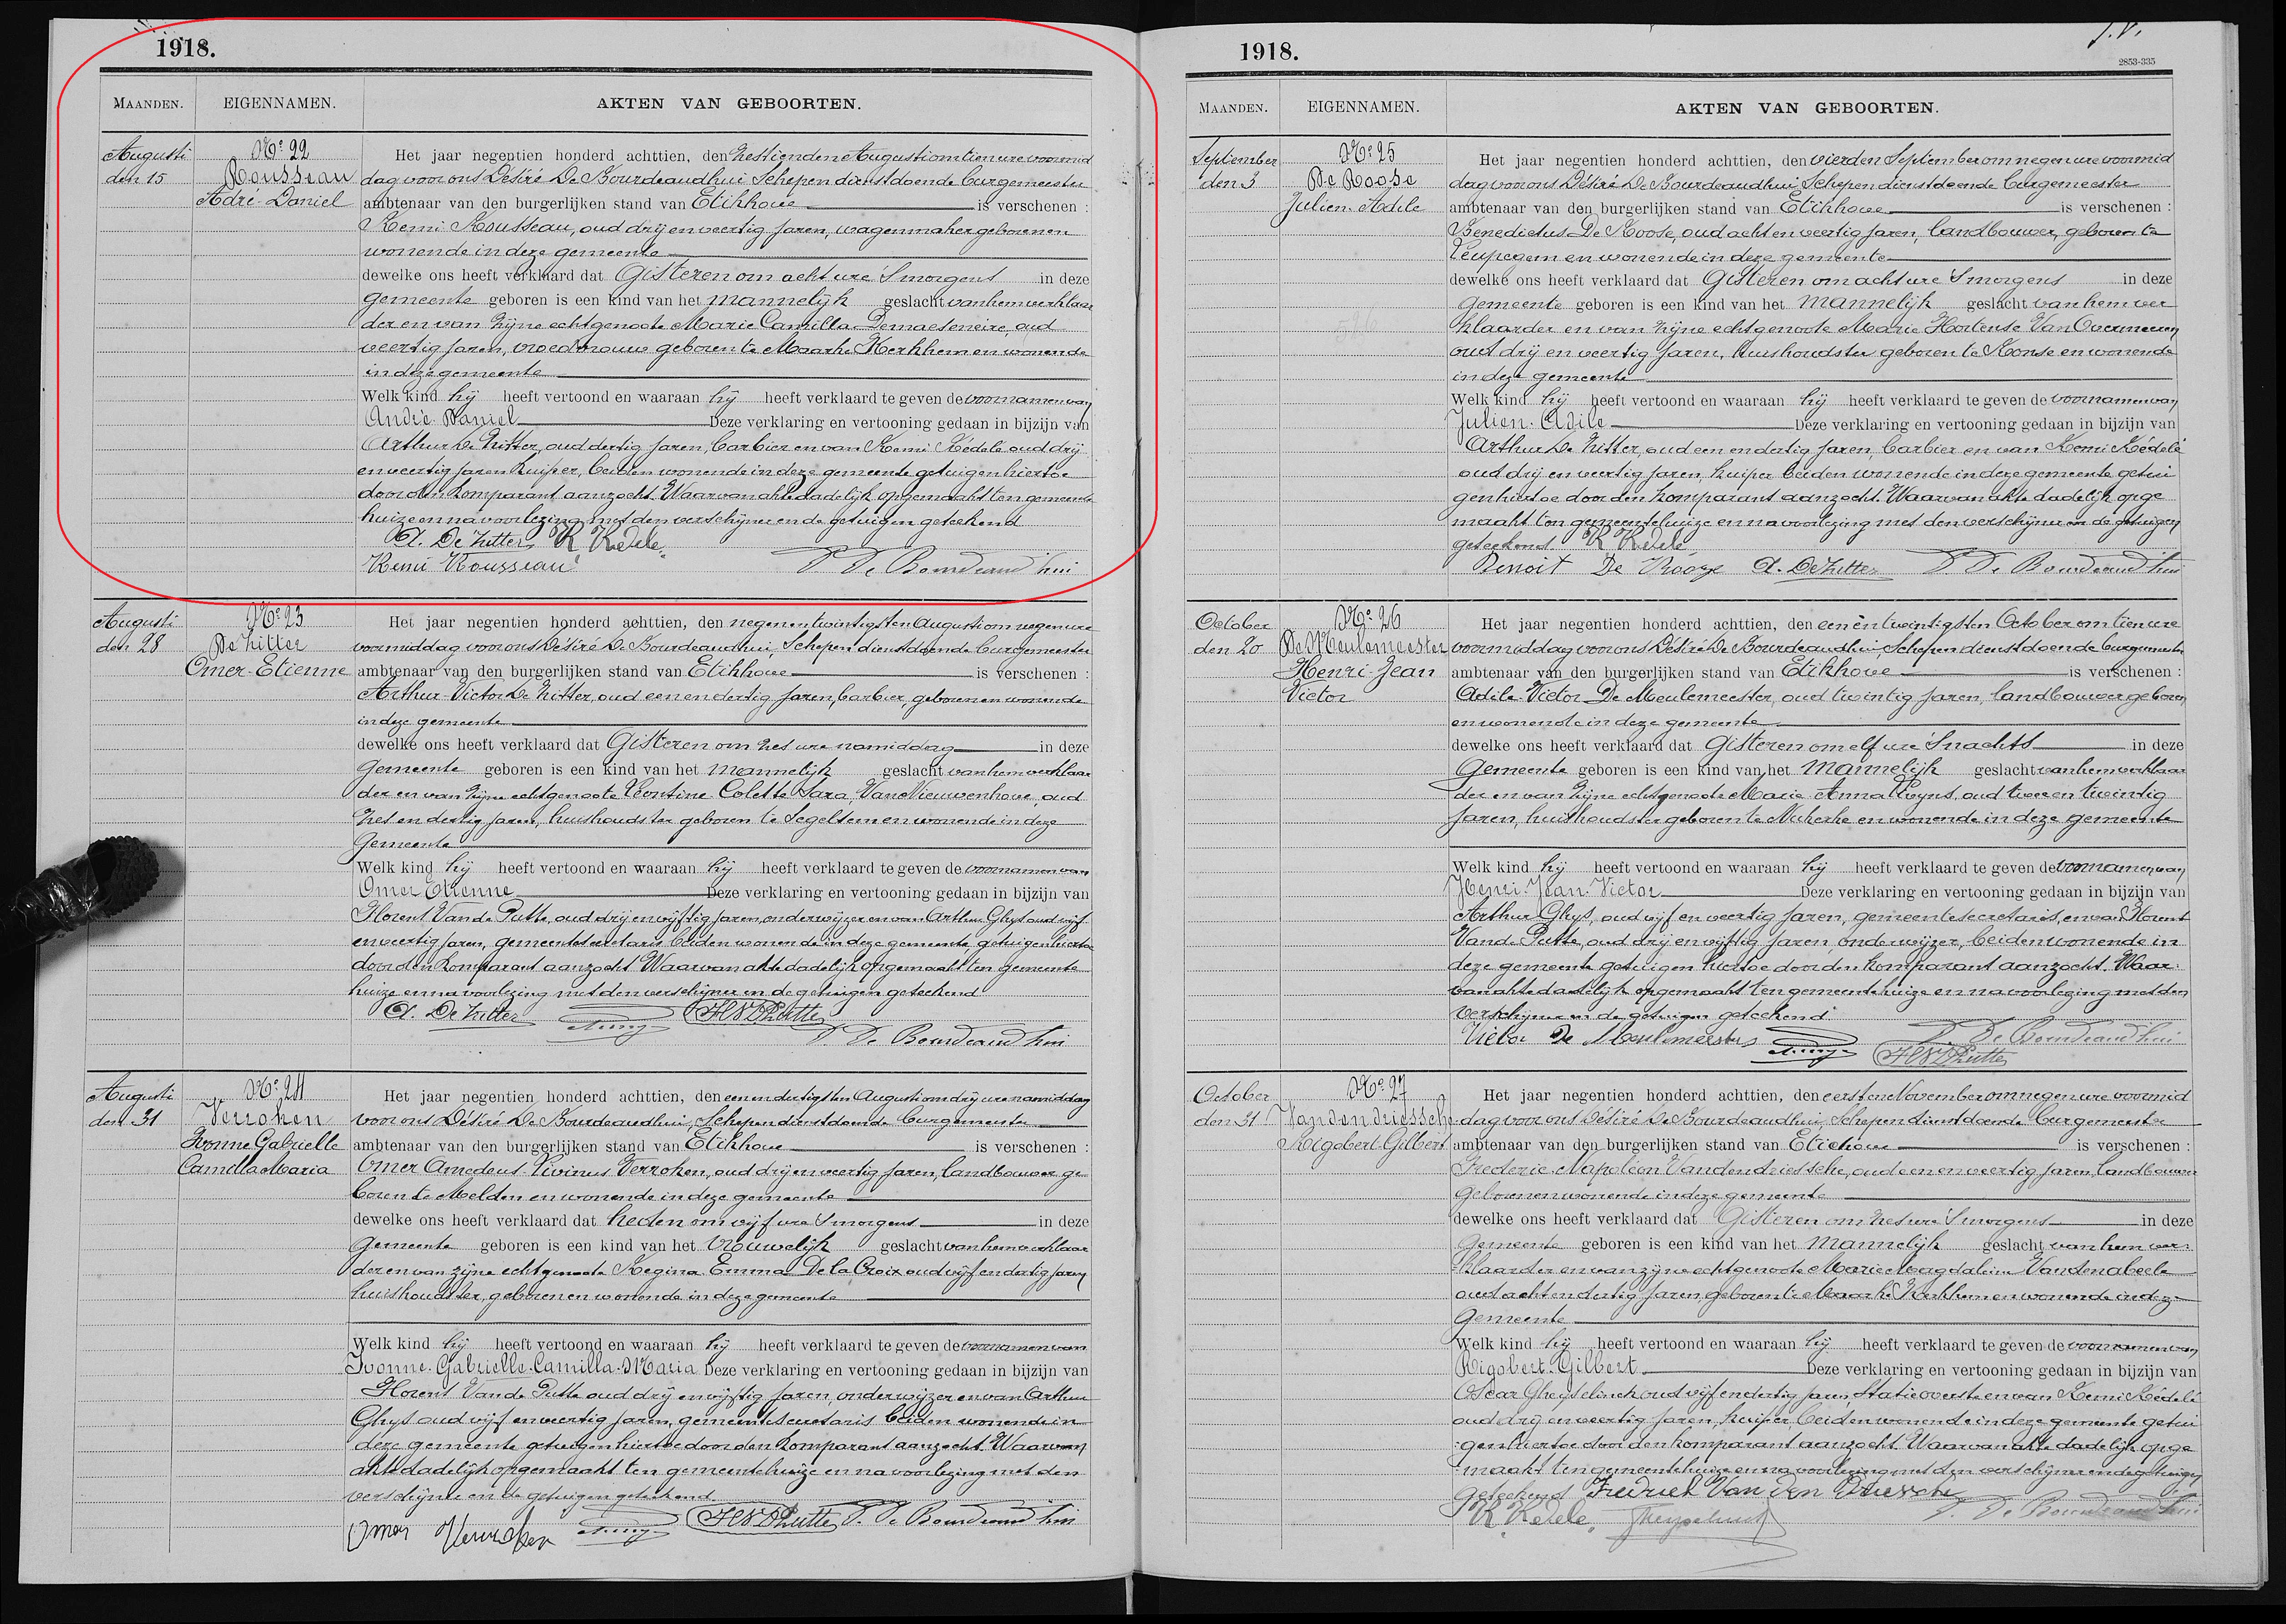 1918.
MAANDEN. EIGENNAMEN. AKTEN VAN GEBOORTEN.
Augusti
den 15
No 22
Rousseau
Adré-Daniel
Het jaar negentien honderd achttien, den zestienden Augusti om tien ure voormid
dag voor ons Désiré De Bourdeaudhui Schepen dienstdoende burgemeester
ambtenaar van den burgerlijken stand van Etikhove is verschenen :
Remi Rousseau, oud drij en veertig jaren, wagenmaker geboren en
wonende in deze gemeente
dewelke ons heeft verklaard dat Gisteren om acht ure 'Smorgens in deze
gemeente geboren is een kind van het mannelijk geslacht van hem verklaar
der en van zijne echtgenoote Marie Camilla Demaeseneire, oud
veertig jaren, vroedvrouw geboren te Maarke Kerkhem en wonende
in deze gemeente
Welk kind hij heeft vertoond en waaraan hij heeft verklaard te geven de voornamen van
André Daniel Deze verklaring en vertooning gedaan in bijzijn van
Arthur De Zutter, oud dertig jaren, barbier en van Remi Kédelé oud drij
en veertig jaren kuiper, beiden wonende in deze gemeente getuigen hiertoe
door den komparant aanzocht. Waarvan akte dadelijk opgemaakt ten gemeente
huize en na voorlezing met den verschijner en de getuigen geteekend
A. De Zutter R. Kedele.
Remi Rousseau D. De Bourdeaud'hui
Augusti
den 28
No 23
De Zutter
Omer-Etienne
Het jaar negentien honderd achttien, den negenentwintigsten Augusti om negen ure
voormiddag voor ons Désiré De Bourdeaudhui, Schepen dienstdoende burgemeester
ambtenaar van den burgerlijken stand van Etikhove is verschenen :
Arthur-Victor De Zutter, oud een en dertig jaren, barbier, geboren en wonende
in deze gemeente
dewelke ons heeft verklaard dat Gisteren om zes ure namiddag in deze
gemeente geboren is een kind van het mannelijk geslacht van hem verklaar
der en van zijne echtgenoote Leontine Colette Sara, Van Nieuwenhove, oud
zes en dertig jaren, huishoudster geboren te Segelsem en wonende in deze
Gemeente
Welk kind hij heeft vertoond en waaraan hij heeft verklaard te geven de voornamen van
Omer Etienne Deze verklaring en vertooning gedaan in bijzijn van
Florent Vande Putte, oud drij en vijftig jaren, onderwijzer en van Arthur Ghys oud vijf
en veertig jaren, gemeentesecretaris beiden wonende in deze gemeente, getuigen hiertoe
door den komparant aanzocht. Waarvan akte dadelijk opgemaakt ten gemeente
huize en na voorlezing met den verschijner en de getuigen geteekend
A. De Zutter
D. De Bourdeaud'hui
Augusti
den 31
No 24
Verroken
Ivonne Gabrielle
Camilla Maria
Het jaar negentien honderd achttien, den eenendertigsten Augusti om drij ure namiddag
voor ons Désiré De Bourdeaudhui, Schepen dienstdoende burgemeester
ambtenaar van den burgerlijken stand van Etikhove is verschenen :
Omer Amedeus Livinus Verroken, oud drij en veertig jaren, landbouwer ge
boren te Melden en wonende in deze gemeente
dewelke ons heeft verklaard dat heden om vijf ure 'Smorgens in deze
gemeente geboren is een kind van het vrouwelijk geslacht van hem verklaar
der en van zijne echtgenoote Regina Emma De la Croix oud vijf en dertig jaren
huishoudster, geboren en wonende in deze gemeente
Welk kind hij heeft vertoond en waaraan hij heeft verklaard te geven de voornamen van
Ivonne-Gabrielle-Camilla-Maria Deze verklaring en vertooning gedaan in bijzijn van
Florent Vande Putte oud drij en vijftig jaren, onderwijzer en van Arthur
Ghys oud vijf en veertig jaren, gemeentesecretaris beiden wonende in
deze gemeente getuigen hiertoe door den komparant aanzocht. Waarvan
akte dadelijk opgemaakt ten gemeentehuize en na voorlezing met den
verschijner en de getuigen geteekend
Omer Verroken D. De Bourdeaud'hui
1918.
2853-335
MAANDEN. EIGENNAMEN. AKTEN VAN GEBOORTEN.
September
den 3
No 25
De Roose
Julien-Adile
Het jaar negentien honderd achttien, den vierden September om negen ure voormid
dag voor ons Désiré De Bourdeaudhui, Schepen dienstdoende burgemeester
ambtenaar van den burgerlijken stand van Etikhove is verschenen :
Benedictus De Roose, oud acht en veertig jaren, landbouwer, geboren te
Leupegem en wonende in deze gemeente
dewelke ons heeft verklaard dat Gisteren om acht ure 'Smorgens in deze
gemeente geboren is een kind van het mannelijk geslacht van hem ver
klaarder en van zijne echtgenoote Marie Hortense Van Overmeeren
oud drij en veertig jaren, huishoudster geboren te Ronse en wonende
in deze gemeente
Welk kind hij heeft vertoond en waaraan hij heeft verklaard te geven de voornamen van
Julien-Adile Deze verklaring en vertooning gedaan in bijzijn van
Arthur De Zutter, oud een en dertig jaren, barbier en van Remi Kédelé
oud drij en veertig jaren, kuiper beiden wonende in deze gemeente getui
gen hiertoe door den komparant aanzocht. Waarvan akte dadelijk opge
maakt ten gemeentehuize en na voorlezing met den verschijner en de getuigen
geteekend R. Kedele
Benoit De Rooze A. De Zutter D. De Bourdeaud'hui
October
den 20
No 26
De Meulemeester
Henri-Jean
Victor
Het jaar negentien honderd achttien, den een en twintigsten October om tien ure
voormiddag voor ons Désiré De Bourdeaudhui, Schepen dienstdoende burgemeester
ambtenaar van den burgerlijken stand van Etikhove is verschenen :
Adile-Victor De Meulemeester, oud twintig jaren, landbouwer geboren
en wonende in deze gemeente
dewelke ons heeft verklaard dat Gisteren om elf ure 'Snachts in deze
Gemeente geboren is een kind van het mannelijk geslacht van hem verklaar
der en van zijne echtgenoote Marie-Anna Pruyns, oud twee en twintig
jaren, huishoudster geboren te Nukerke en wonende in deze gemeente
Welk kind hij heeft vertoond en waaraan hij heeft verklaard te geven de voornamen van
Henri-Jean-Victor Deze verklaring en vertooning gedaan in bijzijn van
Arthur Ghys, oud vijf en veertig jaren, gemeentesecretaris, en van Florent
Vande Putte, oud drij en vijftig jaren, onderwijzer, beiden wonende in
deze gemeente getuigen hiertoe door den komparant aanzocht. Waar
van akte dadelijk opgemaakt ten gemeentehuize en na voorlezing met den
verschijner en de getuigen geteekend
Victor De Meulemeester D. De Bourdeaud'hui
October
den 31
No 27
Vandendriessche
Rigobert-Gilbert
Het jaar negentien honderd achttien, den eersten November om negen ure voormid
dag voor ons Désiré De Bourdeaudhui, Schepen dienstdoende burgemeester
ambtenaar van den burgerlijken stand van Etichove is verschenen :
Frederic-Napoleon Vandendriessche, oud een en veertig jaren, landbouwer
geboren en wonende in deze gemeente
dewelke ons heeft verklaard dat Gisteren om zes ure 'Smorgens in deze
Gemeente geboren is een kind van het mannelijk geslacht van hem ver
klaarder en van zijne echtgenoote Marie Magdalena Vandenabeele
oud acht en dertig jaren geboren te Maarke Kerkhem en wonende in deze
Gemeente
Welk kind hij heeft vertoond en waaraan hij heeft verklaard te geven de voornamen van
Rigobert-Gilbert Deze verklaring en vertooning gedaan in bijzijn van
Oscar Gheyselinck oud vijf en dertig jaren, Statieoverste en van Remi Kédelé
oud drij en veertig jaren, kuiper, beiden wonende in deze gemeente getui
gen hiertoe door den komparant aanzocht. Waarvan akte dadelijk opge
maakt ten gemeentehuize en na voorlezing met den verschijner en de getuigen
geteekend Frederick Van den Driessche
R. Kedele. Gheyselinck D. De Bourdeaud'hui